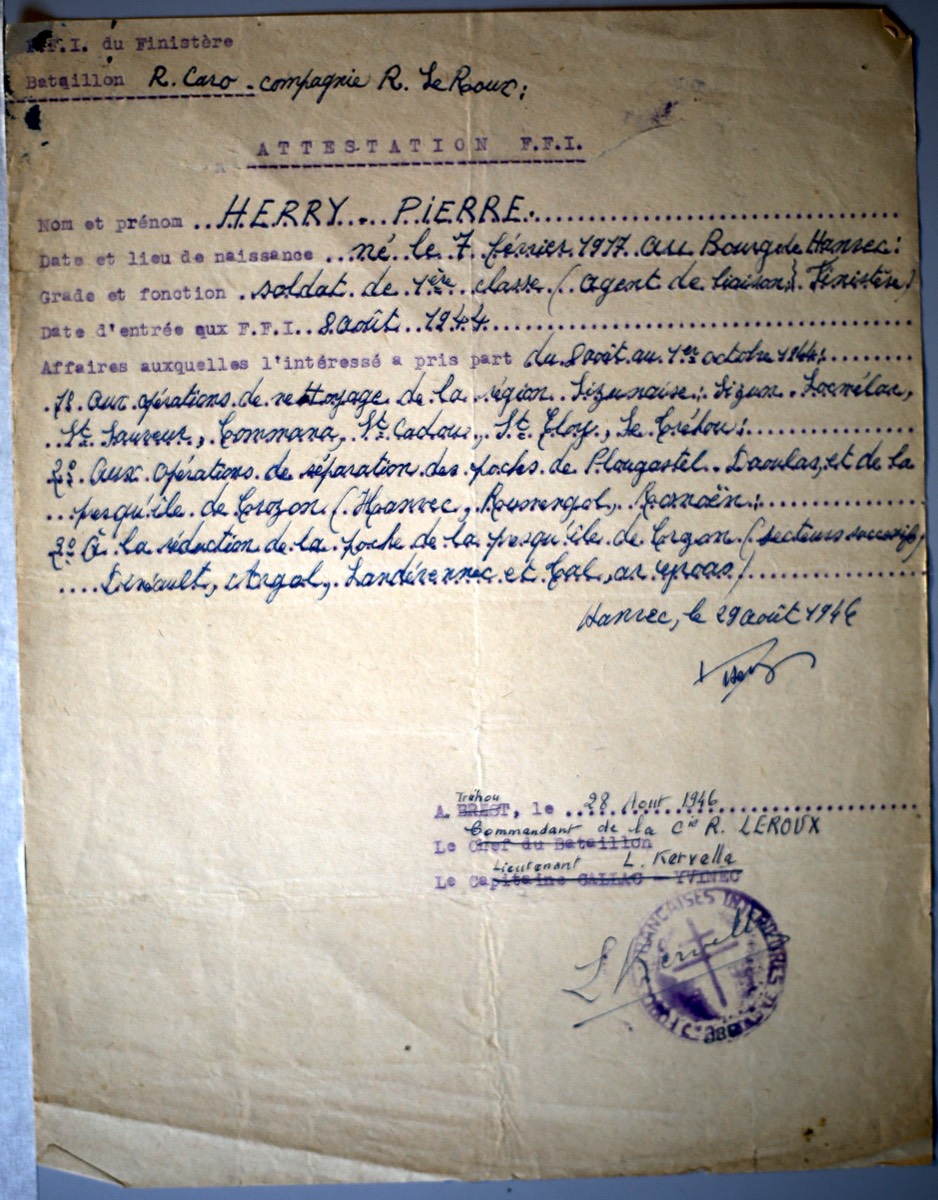 F.F.I. du Finistère
Bataillon R. Caro - compagnie R. Le Roux :
ATTESTATION F.F.I.
Nom et prénom .. HERRY .. PIERRE.
Date et lieu de naissance ... né le 7 février 1917 au Bourg de Hanvec :
Grade et fonction . soldat de 1ère classe ( agent de liaison, Finistère )
Date d'entrée aux F.F.I. 8 août 1944
Affaires auxquelles l'intéressé a pris part du 8 août au 1er octobre 1944 :
1° aux opérations de nettoyage de la région Sizunaise : Sizun, Locmélar,
St Sauveur, Commana, St Cadou, St Eloy, Le Tréhou :
2° Aux opérations de séparation des poches de Plougastel-Daoulas, et de la
presqu'île de Crozon ( Hanvec, Rumengol,
3° à la réduction de la poche de la presqu'île de Crozon ( secteurs successifs
Dinéault, Argol, Landévennec et
Hanvec, le 29 août 1946
Tréhou
A. BREST, le ... 28 Aout 1946
Commandant de la Cie R. LEROUX
Le Chef du Bataillon
Lieutenant L. Kervella
Le Capitaine GALLAC - YVINEC
L Kervella
FORCES FRANÇAISES INTERIEURES